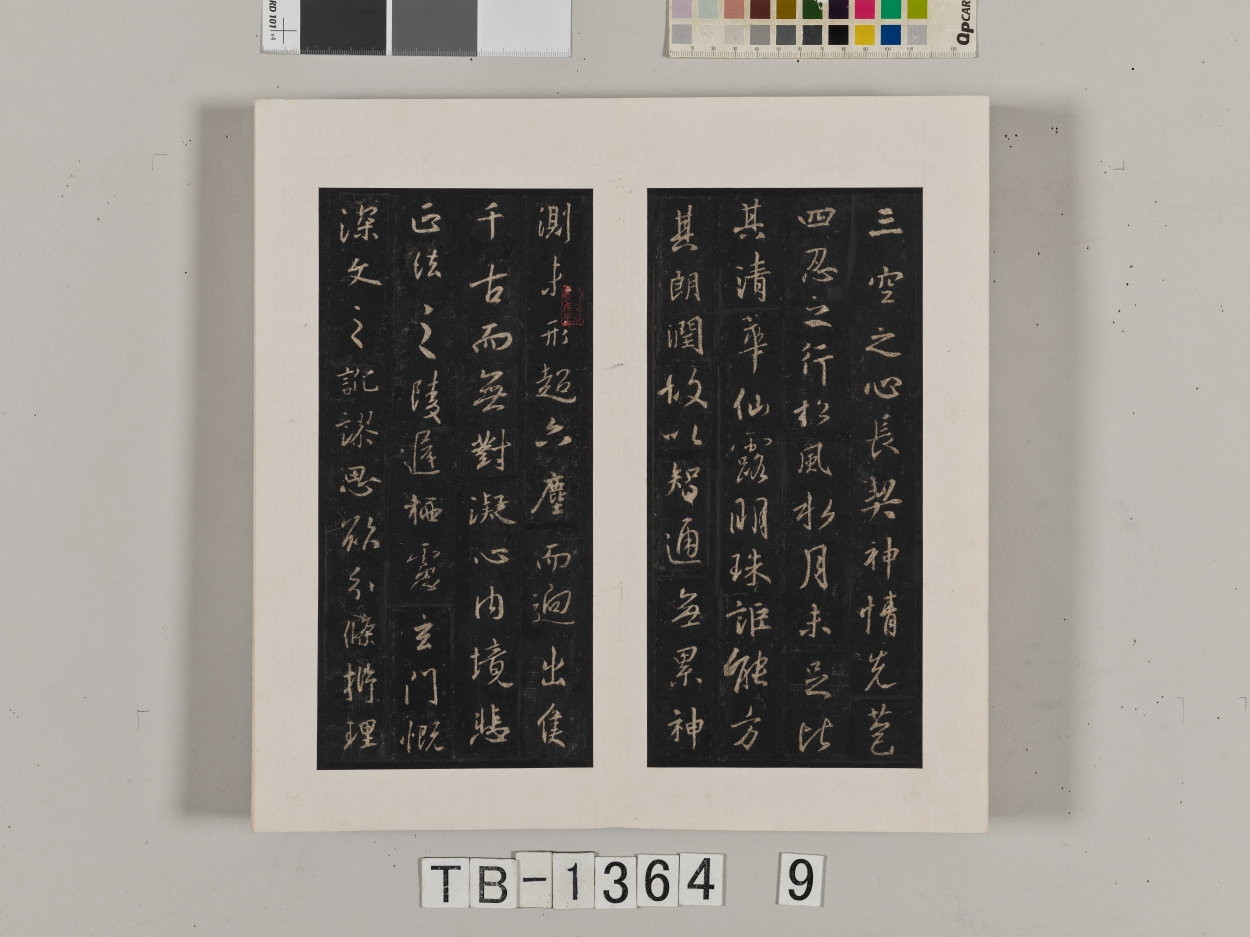 三空之心長契神情先苞
四忍之行松風水月未足比
其清華仙露明珠詎能方
其朗潤故以智通無累神
測未形超六塵而迥出隻
千古而無對凝心內境悲
正法之陵遲栖慮玄門慨
深文之訛謬思欲分條析理
TB-1364 9